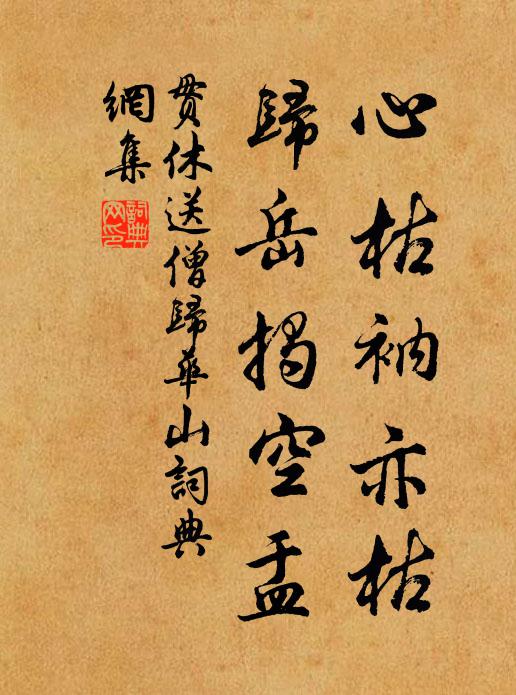 心枯衲亦枯
歸岳揭空盂
貫休送僧歸華山詞典
網集
詞典
网印